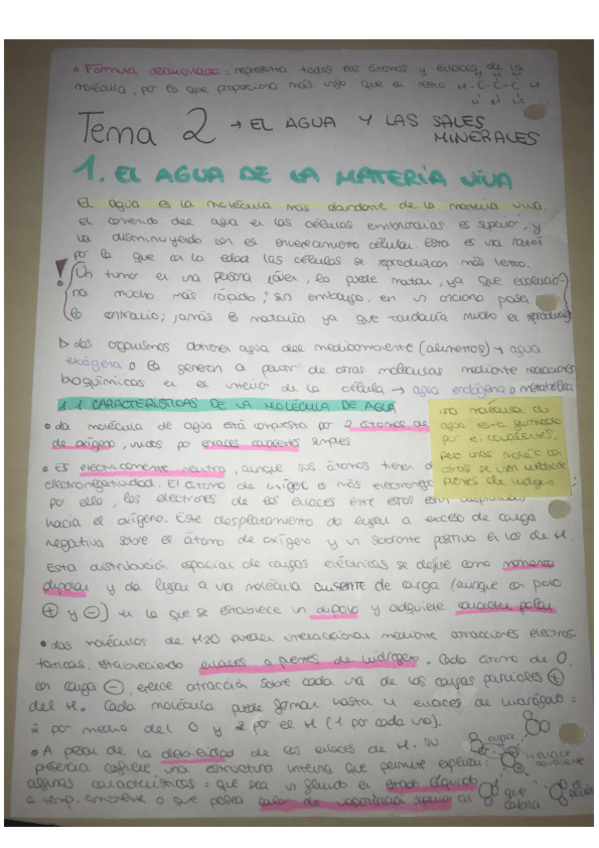 • Fórmula desarrollada: representa todos los átomos y enlaces de la
molécula, por lo que proporciona más info. que el resto H-C-C-C-H
Tema 2 → EL AGUA Y LAS SALES
MINERALES
1. EL AGUA DE LA MATERIA VIVA
El agua es la molécula más abundante de la materia viva.
El contenido del agua en las células embrionarias es superior, y
va disminuyendo con el envejecimiento celular. Esta es una razón
por la que con la edad las células se reproduzcan más lento.
Un tumor en una persona joven, lo puede matar, ya que evolucio-
na mucho más rápido; sin embargo, en un anciano pasa
lo contrario; jamás lo mataría ya que tardaría mucho en reproducirse
▷ Los organismos obtienen agua del medioambiente (alimentos) → agua
exógena o la generan a partir de otras moléculas mediante reacciones
bioquímicas en el interior de la célula. → agua endógena o metabólica
1.1 CARACTERÍSTICAS DE LA MOLÉCULA DE AGUA
• La molécula de agua está compuesta por 2 átomos de
de oxígeno, unidos por enlaces covalentes simples
una molécula de
agua está formada
por e. covalentes,
pero unas moléc con
otras se unen mediante
puentes de hidrógeno
• Es eléctricamente neutra, aunque sus átomos tienen
electronegatividad. El átomo de oxígeno es más electroneg
por ello, los electrones de los enlaces entre estos están
hacia el oxígeno. Este desplazamiento da lugar a exceso de carga
negativa sobre el átomo de oxígeno y un sobrante positivo en los de H
Esta distribución espacial de cargas eléctricas se define como momento
dipolar y da lugar a una molécula ausente de carga (aunque con polo
⊕ y ⊖) en la que se establece un dipolo y adquiere carácter polar
• Las moléculas de H2O pueden interaccionar mediante atracciones electros-
táticas, estableciendo enlaces o puentes de hidrógeno. Cada átomo de O,
con carga ⊖, ejerce atracción sobre cada una de las cargas parciales ⊕
del H. Cada molécula puede formar hasta 4 enlaces de hidrógeno:
2 por medio del O y 2 por el H (1 por cada uno).
• A pesar de la debilidad de los enlaces de H, su
presencia confiere una estructura interna que permite explicar
algunas características: que sea un fluido en estado líquido
a temp. ambiente o que posea calor de vaporización superior al
que
enlace
covalente